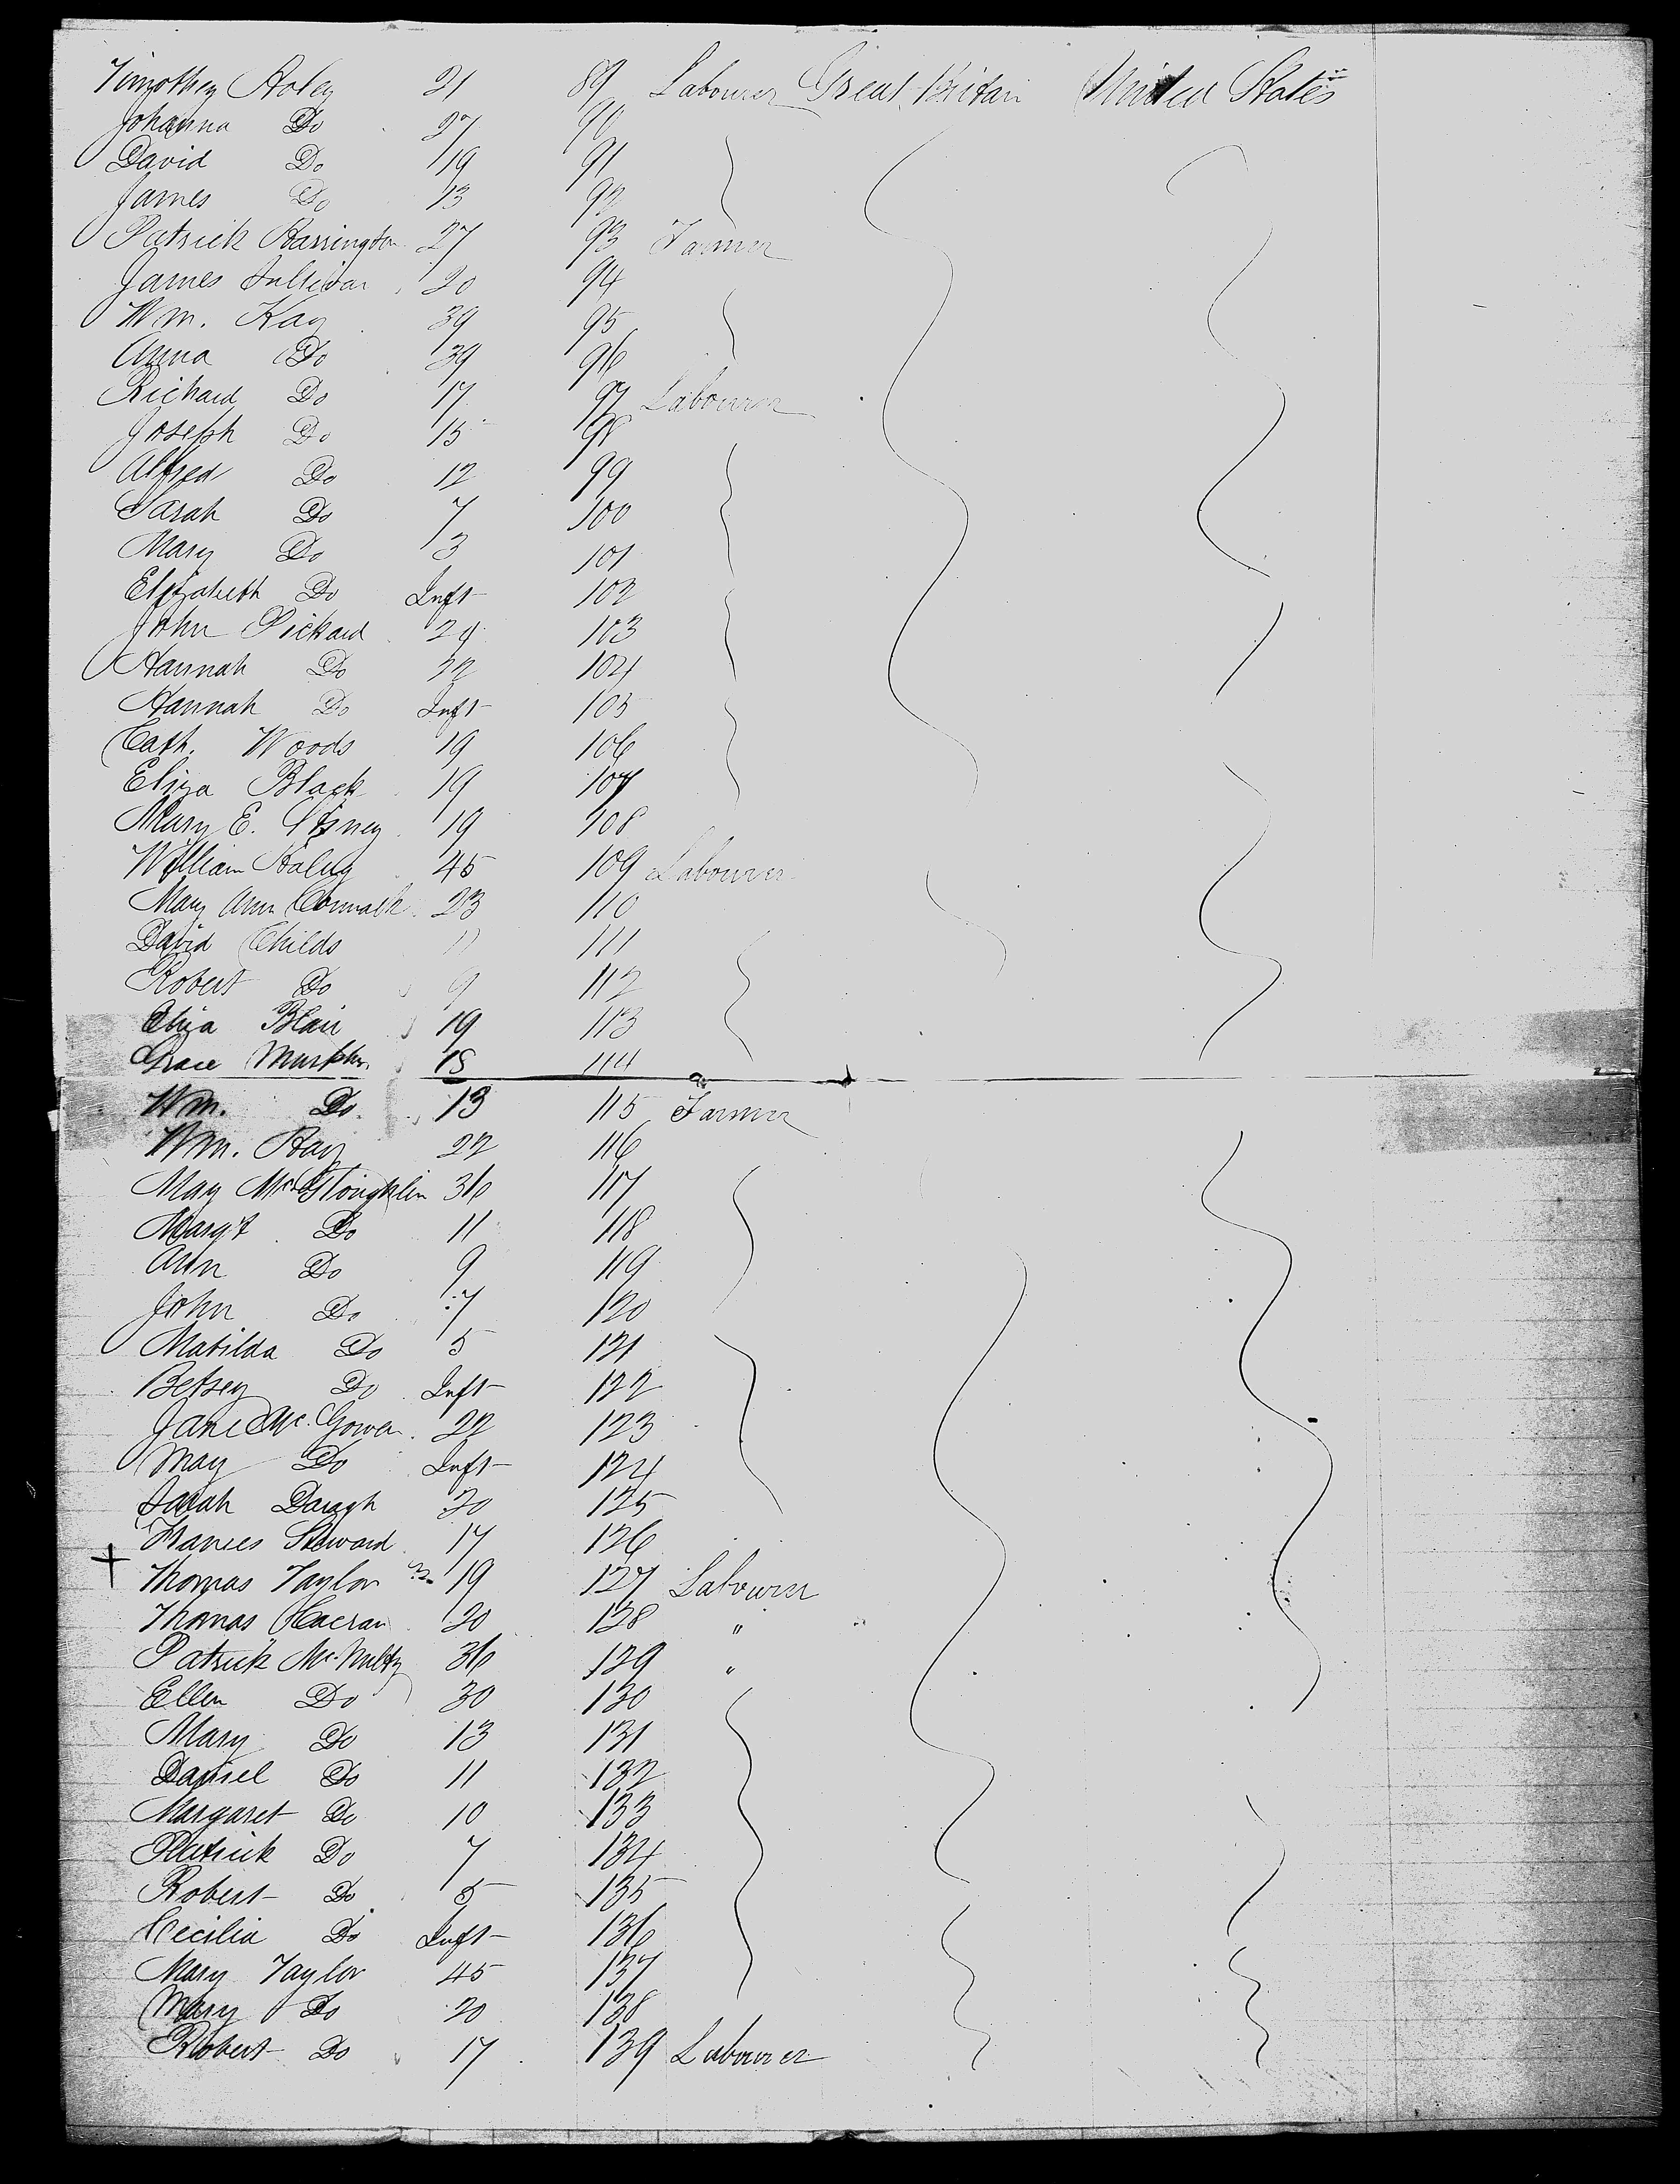 Timothy Holey 21 89 Labourer Great Britain United States
Johanna Do 27 90
David Do 19 91
James Do 13 92
Patrick Harrington 27 93 Farmer
James Sullivan 20 94
Wm. Kay 39 95
Anna Do 39 96
Richard Do 17 97 Labourer
Joseph Do 15 98
Alfred Do 12 99
Sarah Do 7 100
Mary Do 3 101
Elizabeth Do Inft 102
John Pickard 103
Hannah Do 22 104
Hannah Do Inft 105
Cath. Woods 19 106
Eliza Black 19 107
Mary E. 19 108
William Haley 45 109 Labourer
Mary Ann 23 110
David Childs 11 111
Robert Do 9 112
Eliza Blair 19 113
Grace Murphy 18 114
Wm. Do 13 115 Farmer
Wm. Hay 22 116
May 36 117
Marg't Do 11 118
Ann Do 9 119
John Do 7 120
Matilda Do 5 121
Betsey Do Inft 122
Jane Mc. Gowan 22 123
May Do Inft 124
Sarah Daragh 20 125
Frances Steward 17 126
Thomas Taylor 19 127 Labourer
Thomas 20 128 "
Patrick Mc. Nulty 36 129 "
Ellen Do 30 130
Mary Do 13 131
Daniel Do 11 132
Margaret Do 10 133
Patrick Do 7 134
Robert Do 5 135
Cecilia Do Inft 136
Mary Taylor 45 137
Mary Do 20 138
Robert Do 17 139 Labourer